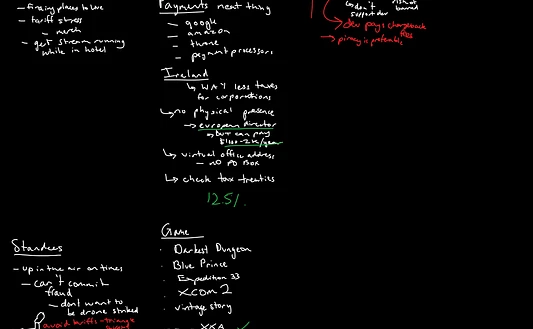 - finding places to live
- tariff stress
- merch
- get stream running
while in hotel
Payments neat thing
- google
- amazon
- throne
- payment processors
Ireland
↳ WAY less taxes
for corporations
↳ no physical presence
→ european director
↳ but can pay
/year
↳ virtual office address
- no PO BOX
↳ check tax treaties
12.5%
don't
support dev
risk of
banned
→ dev pays chargeback
fees
→ piracy is preferable
Standees
- up in the air on times
- can't commit
fraud
- don't want to
be drone striked
avoid tariffs - triangle
Game
· Darkest Dungeon
· Blue Prince
· Expedition 33
· XCOM 2
· vintage story